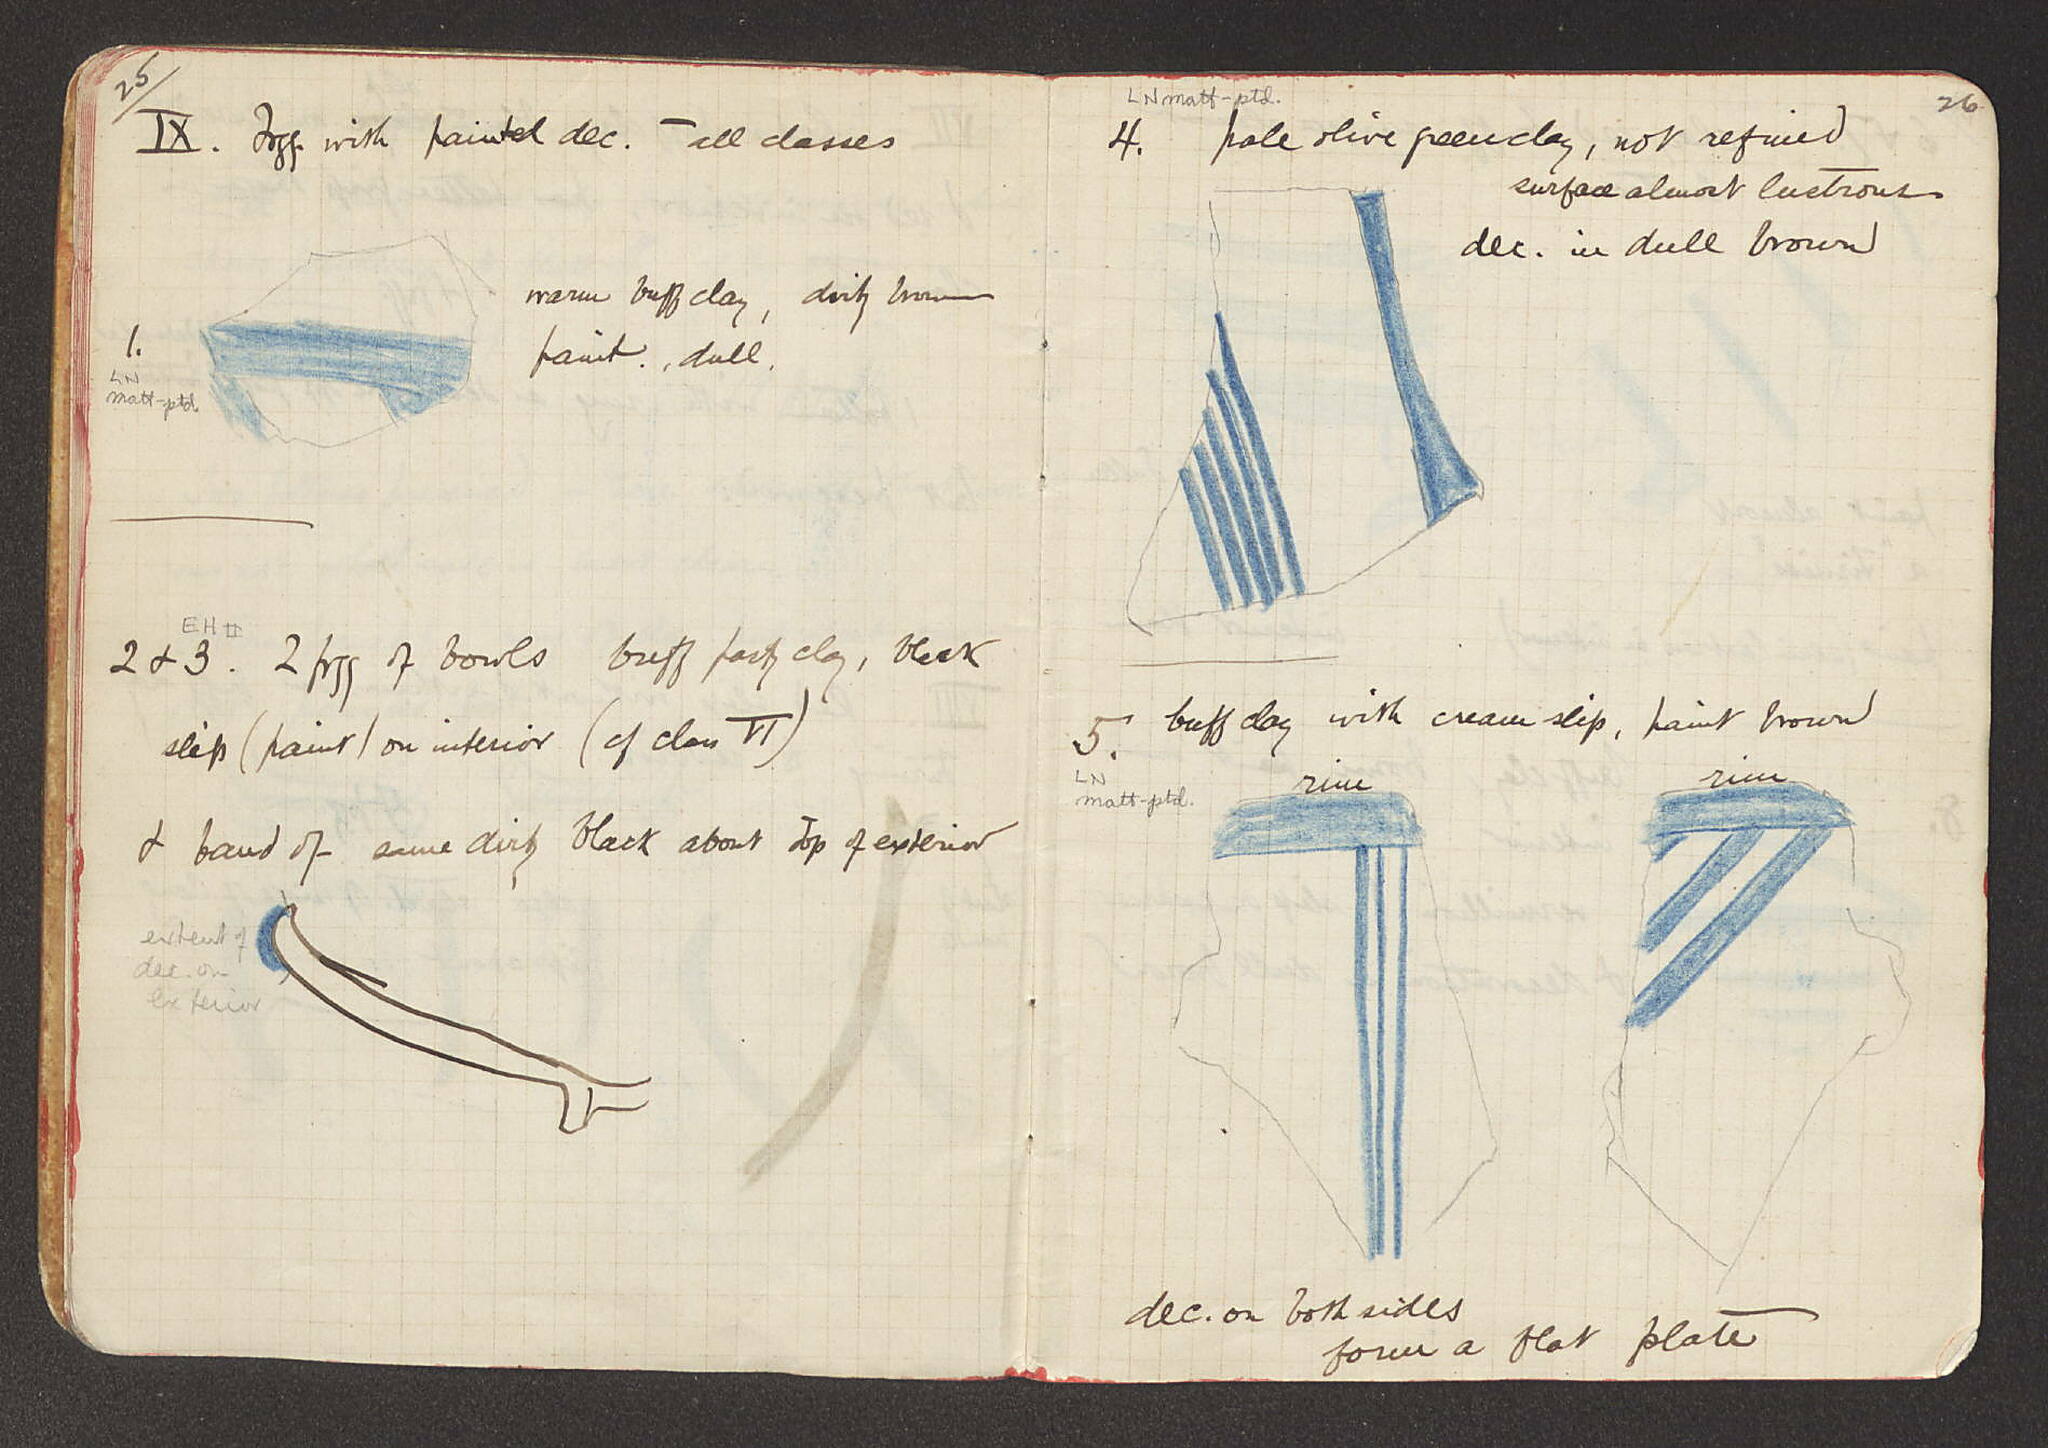 25/
IX. Frgg. with painted dec. - all classes
warm buff clay, dirty brown
1.
paint. , dull.
LN
matt-ptd.
EH II
2 & 3. 2 frgg of bowls buff clay, black
slip (paint) on interior (cf class VI)
& band of same dirty black about top of exterior
extent of
dec. on
exterior
26
LN matt-ptd.
4. pale olive green clay, not refined
surface almost lustrous
dec. in dull brown
5. buff clay with cream slip, paint brown
LN
matt-ptd.
rim rim
dec. on both sides
form a flat plate